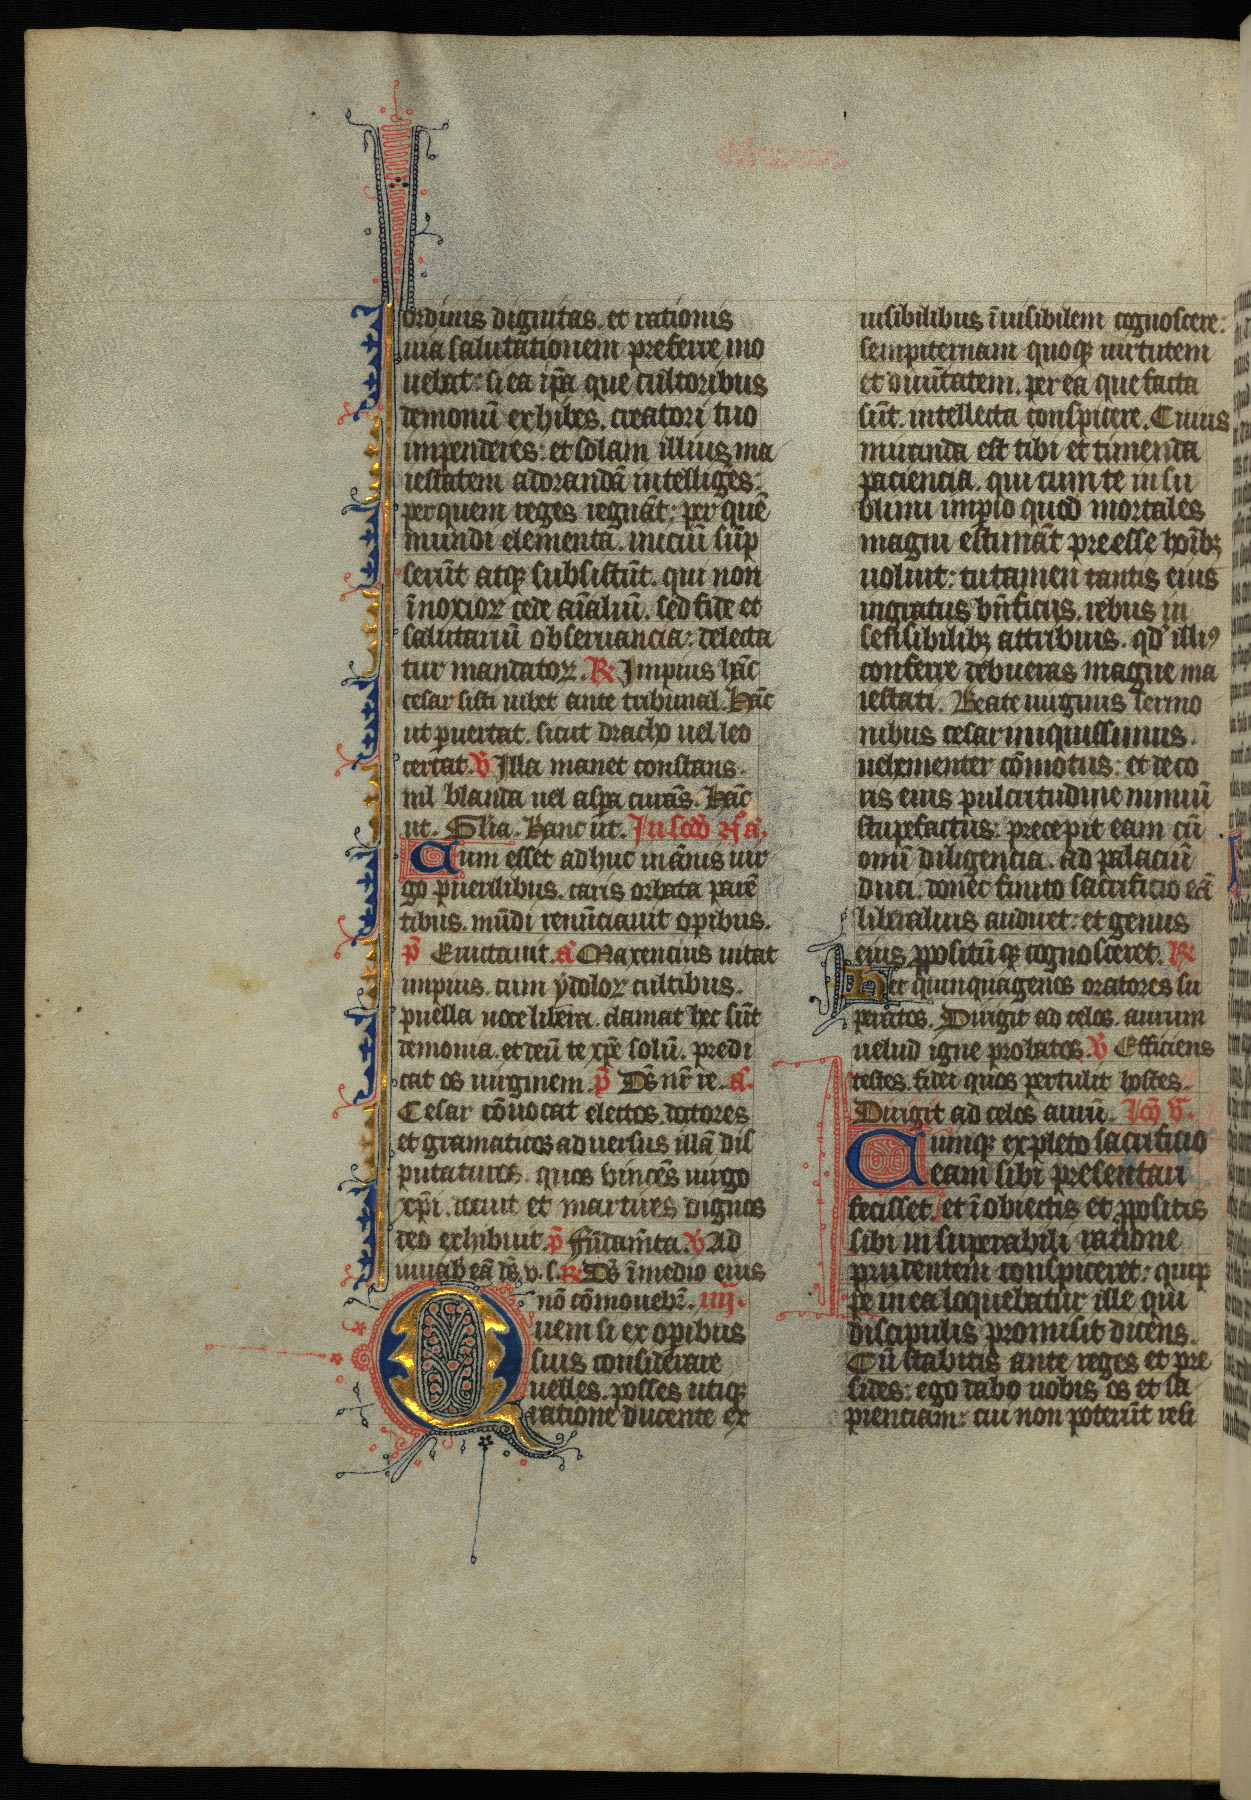 ordinis dignitas. et rationis
uia salutationem preferre mo
uebat: si ea ip̄a que cultoribus
demonū exhibes. creatori tuo
impenderes: et solam illius ma
iestatem adorandā intelliges:
per quem reges regnāt: per quē
mundi elementa. iniciū sūp
serūt atqꝫ subsistūt. qui non
īnoxioꝝ cede aīaliū. sed fide et
salutariū obseruancia: delecta
tur mandatoꝝ. R. Impius hāc
cesar sisti iubet ante tribunal. Hāc
ut puertat. sicut dracho uel leo
certat. V Illa manet constans.
nil blanda uel asp̄a curās. Hāc
ut. Glīa. Hanc ut. In scd̄o
Cum esset adhuc in ānis uir
go puerilibus. caris orbata parē
tibus. mūdi renūciauit opibus.
p̄ Eructauit. a Maxencius uitat
impius. cum ydoloꝝ cultibus.
puella uoce libera. clamat hec sūt
demonia. et deū te xp̄e solū. predi
cat os uirginem. p̄ Dn̄s nr̄ re. a.
Cesar cōuocat electos. doctores
et gramaticos aduersus illā dis
putaturos. quos vincēs uirgo
xp̄i. docuit et martires dignos
deo exhibuit. p̄ Fūdam̄ta. V Ad
iuuab eā d̄s v. s. R. D̄s ī medio eius
nō cōmouebr̄. iiij.
Quem si ex opibus
suis considerare
uelles. posses utiqꝫ
ratione ducente ex
uisibilibus īuisibilem cognoscere:
sempiternam quoqꝫ uirtutem
et diuītatem. per ea que facta
sūt. intellecta conspicere. Cuius
miranda est tibi et timenda
paciencia. qui cum te in su
blimi imp̄io quod mortales
magni estimāt preesse hoībꝫ
uoluit: tu tamen tantis eius
ingratus bn̄ficiis. rebus in
sensibilibꝫ attribuis. qd̄ illiꝰ
conferre debueras magne ma
iestati. Beate uirginis sermo
nibus cesar iniquissimus.
uehementer cōmotus: et deco
ris eius pulcritudine nimiū
stupefactus: precepit eam cū
omī diligencia. ad palaciū
duci: donec finito sacrificio eā
liberalius audiret: et genus
eius ppositūqꝫ cognosceret. R
Hec quinquagenos oratores su
peratos. Dirigit ad celos. aurum
uelud igne probatos. V Efficiens
testes fidei quos pertulit hostes.
Dirigit ad celos aurū. v.
Cumqꝫ expleto sacrificio
eam sibi presentari
fecisset. et ī obiectis et ppositis
sibi insuperabili ratione
prudentem conspiceret: quip
pe in ea loquebatur ille qui
discipulis promisit dicens.
Cū stabitis ante reges et pre
sides: ego dabo uobis os et sa
pienciam: cui non poterūt resi